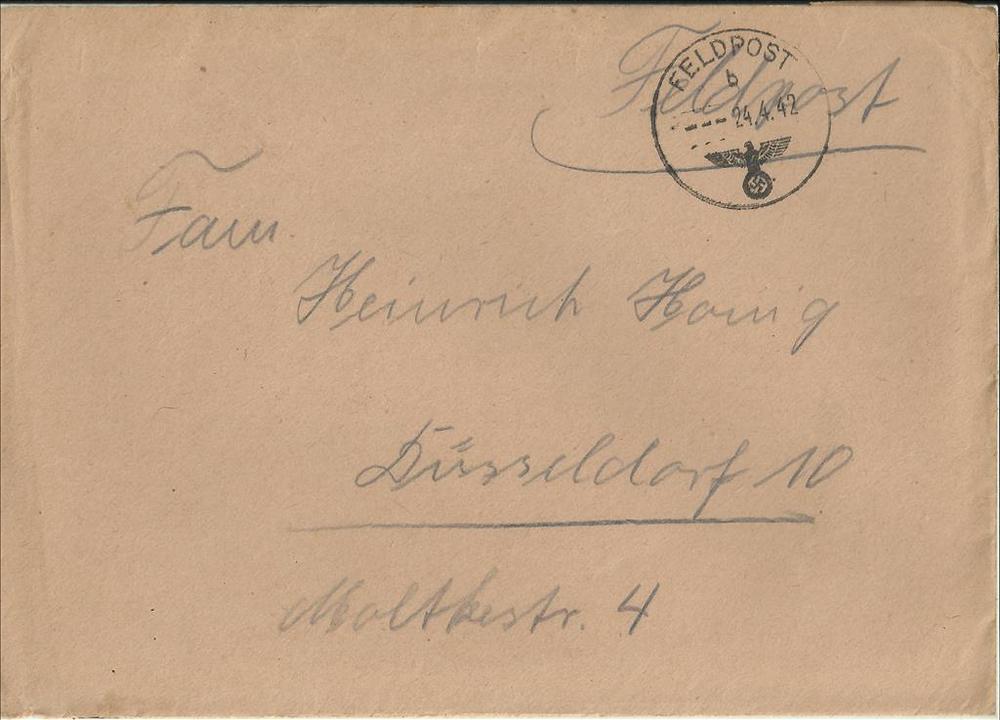 Feldpost
FELDPOST
b
24.4.42
Fam.
Heinrich Hönig
Düsseldorf 10
Moltkestr. 4